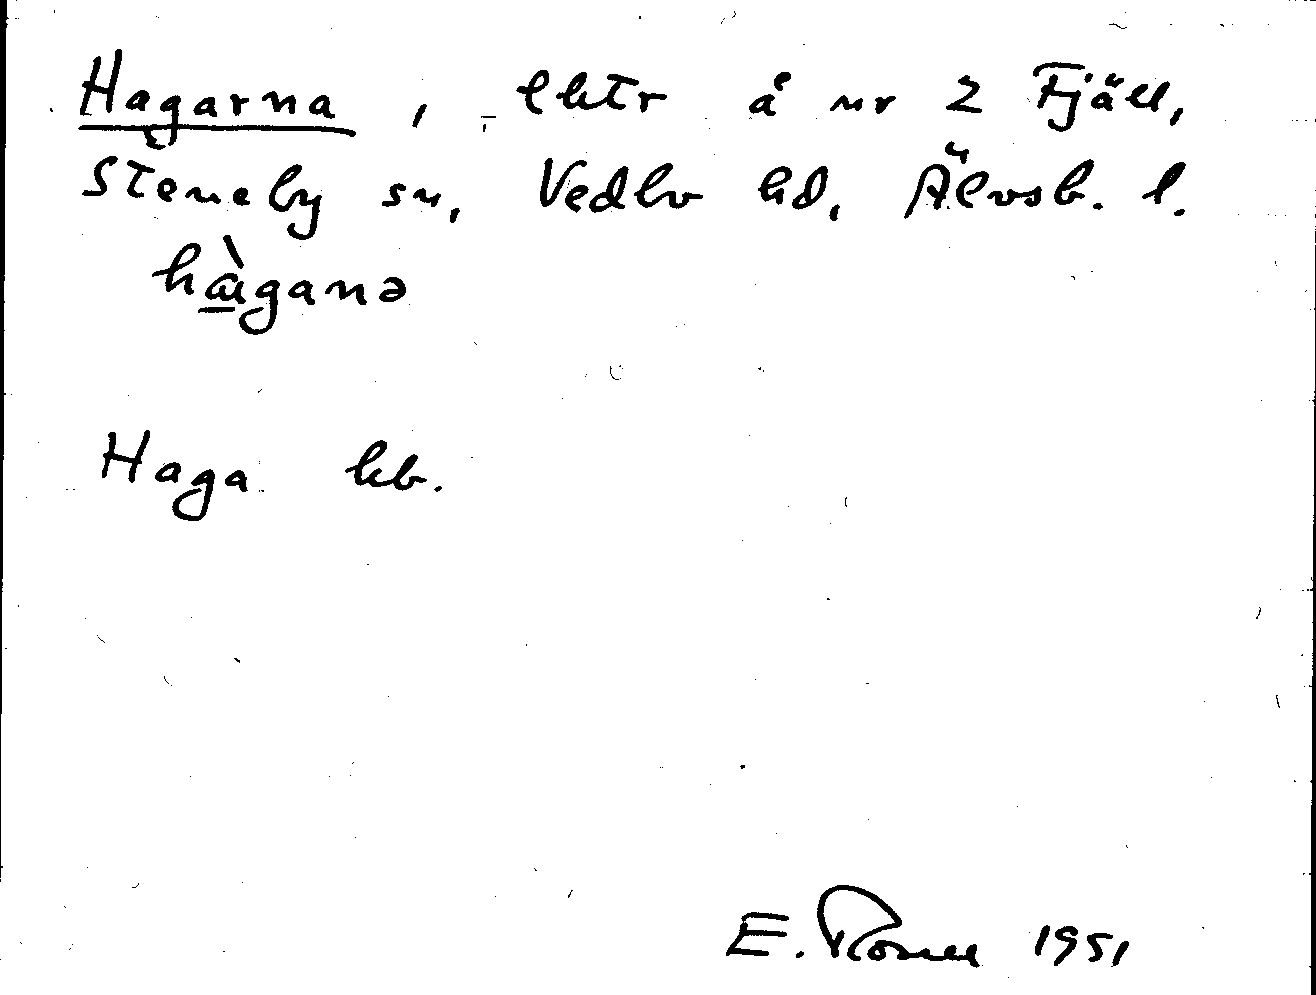 Hagarna, lhtr å nr 2 Fjäll,
Steneby sn, Vedbo hd, Älvsb. l.
hàganə
Haga kb.
E. Rosell 1951